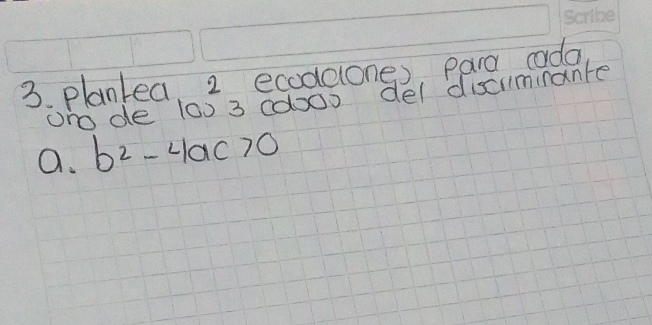 Scribe
3. plantea 2 ecuaciones para cada
uno de los 3 casos del discriminante
a. b² - 4ac > 0